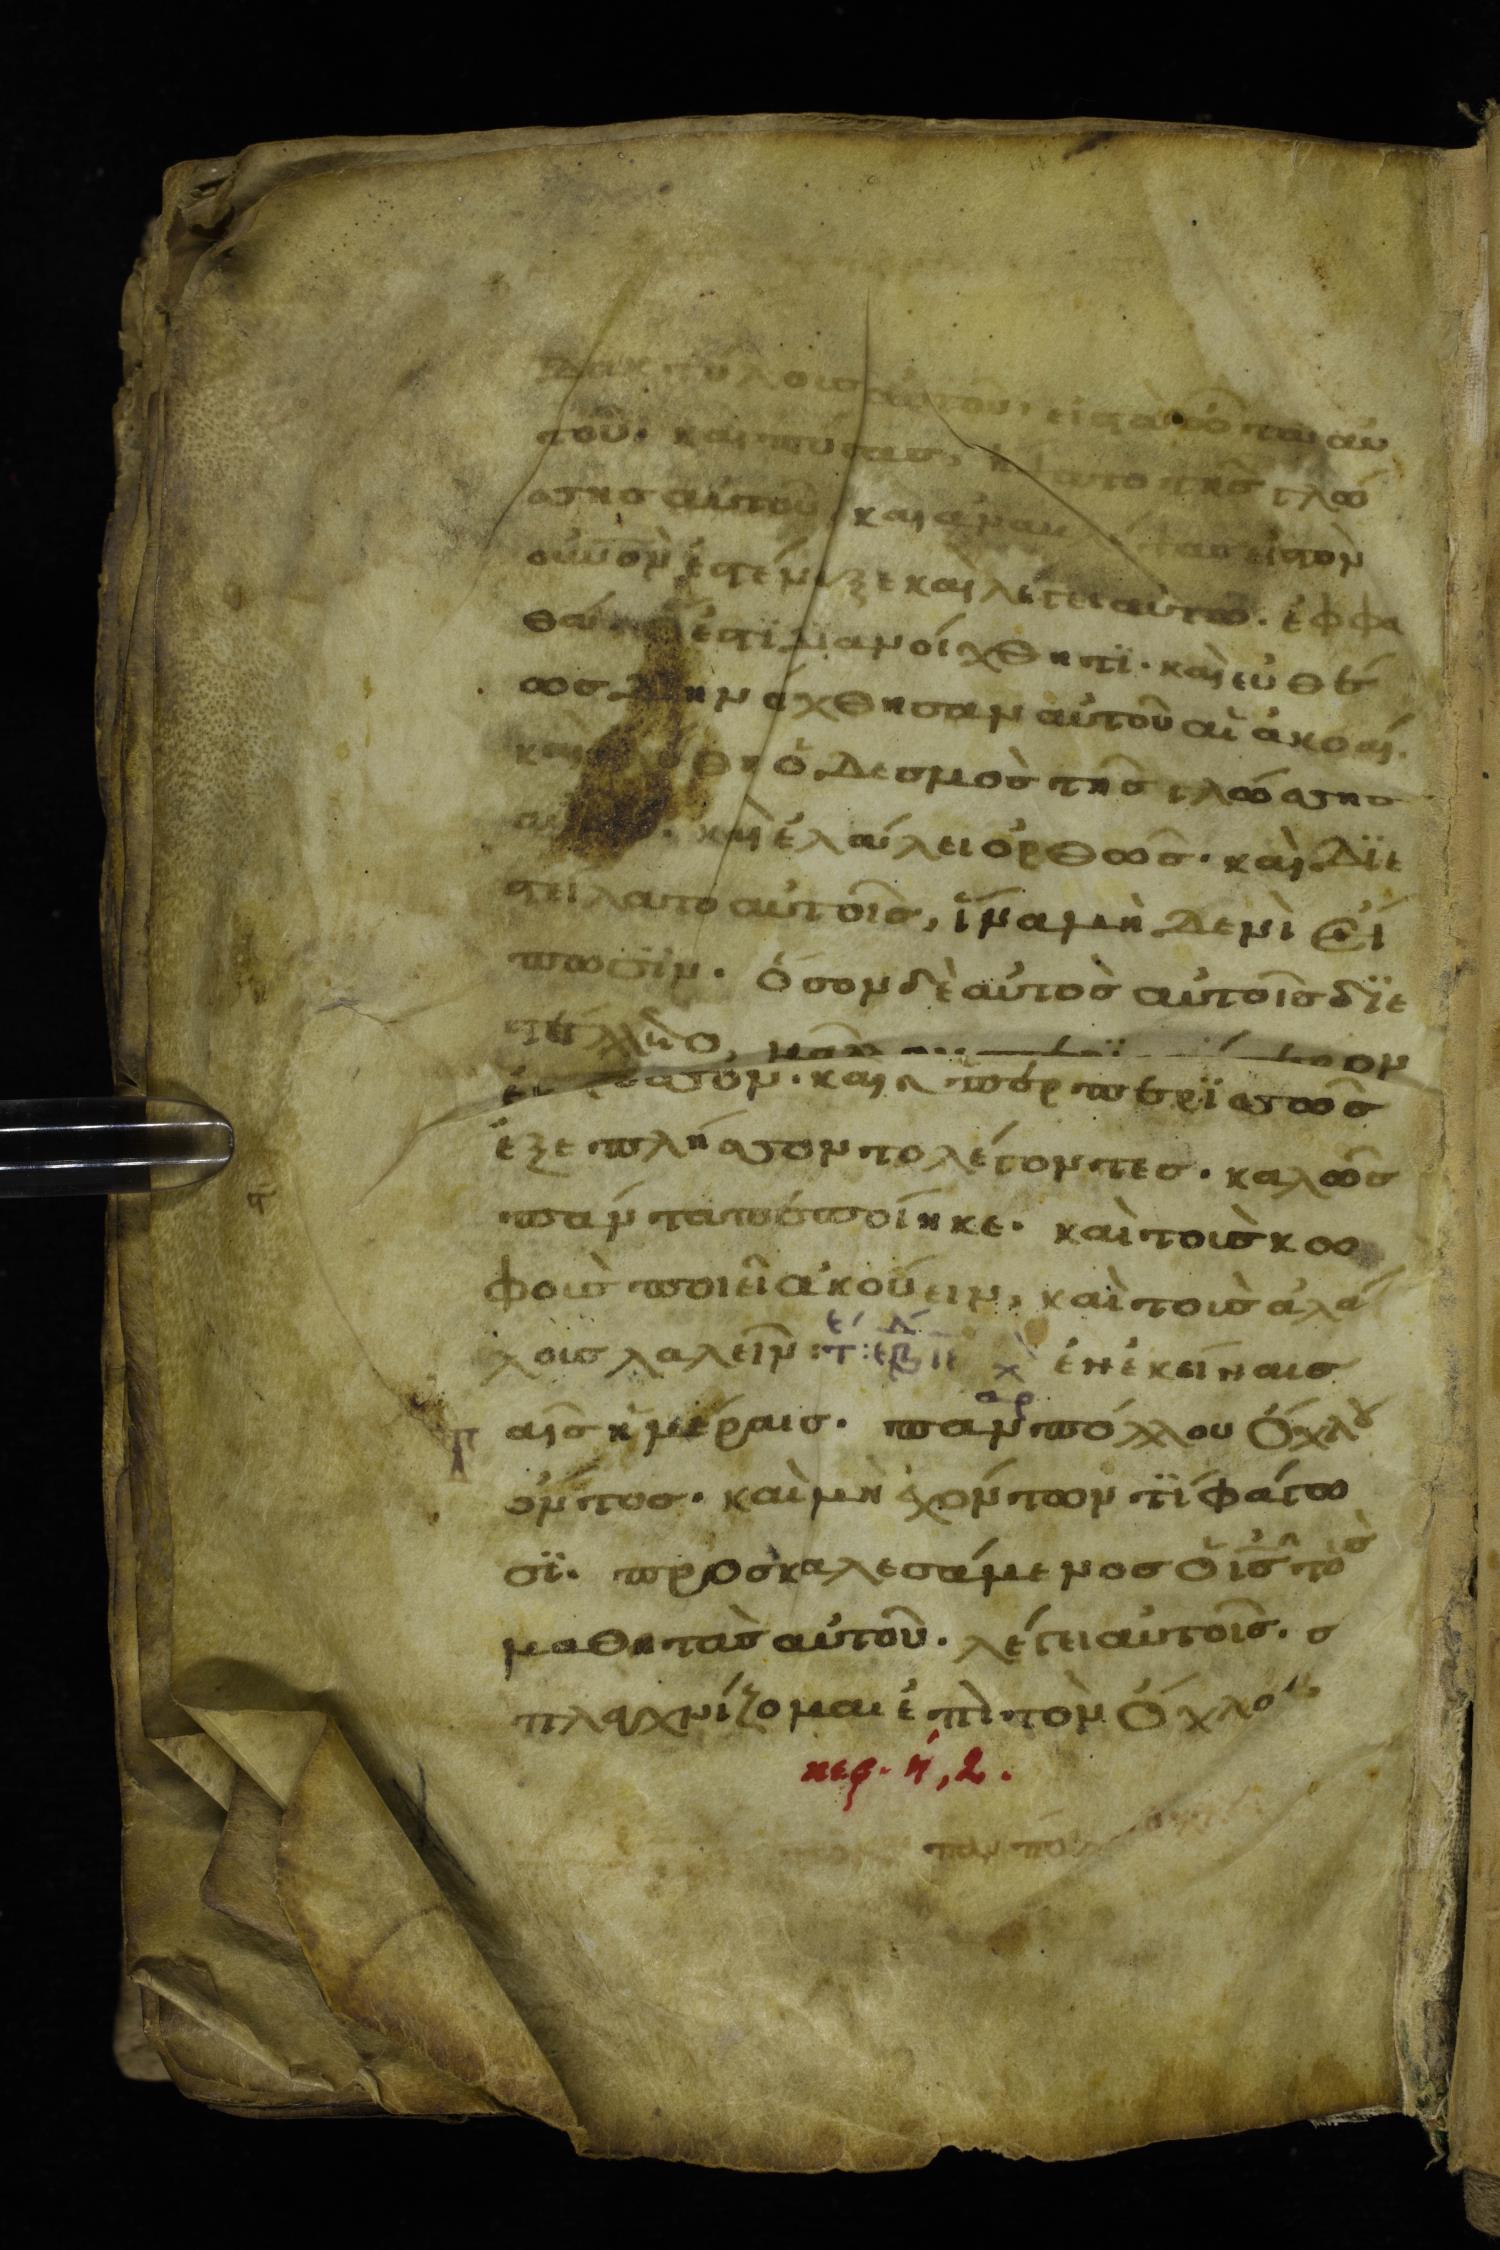 δακτύλους αὐτοῦ, εἰς τὰ ὦτα αὐ
τοῦ. καὶ πτύσας, ἥψατο τῆς γλώ
σσης αὐτοῦ, καὶ ἀναβλέψας εἰς τὸν
οὐνὸν ἐστέναξε καὶ λέγει αὐτῶ. ἐφφα
θά ὅ ἐστϊ διανοίχθητϊ. καὶ εὐθέ
ως διηνοίχθησαν αὐτοῦ αἱ ἀκοαί.
καὶ ἐλύθη ὁ δεσμὸς τῆς γλώσσης
αὐτοῦ. καὶ ἐλάλει ὀρθῶς. καὶ δϊε
στείλατο αὐτοῖς, ἵνα μηδενὶ εἴ
πωσϊν. ὅσον δὲ αὐτὸς αὐτοῖς δϊε
στέλλετο,
ἐκήρυσσον. καὶ ὑπὲρ περϊσσῶς
ἐξεπλήσσοντο λέγοντες. καλῶς
πάντα πεποίηκε. καὶ τοὺς κω
φοὺς ποιεῖ ἀκούειν, καὶ τοὺς ἀλά
λους λαλεῖν: ἐν ἐκείναις
ταῖς ἡμέραις. παμπόλλου ὄχλου
ὄντος. καὶ μὴ ἐχόντων τϊ φάγω
σϊ. προσκαλεσάμενος ὁ ἰς τοὺς
μαθητὰς αὐτοῦ. λέγει αὐτοῖς. σ
πλαχνίζομαι ἐπὶ τὸν ὄχλον,
κεφ. ή, 2.